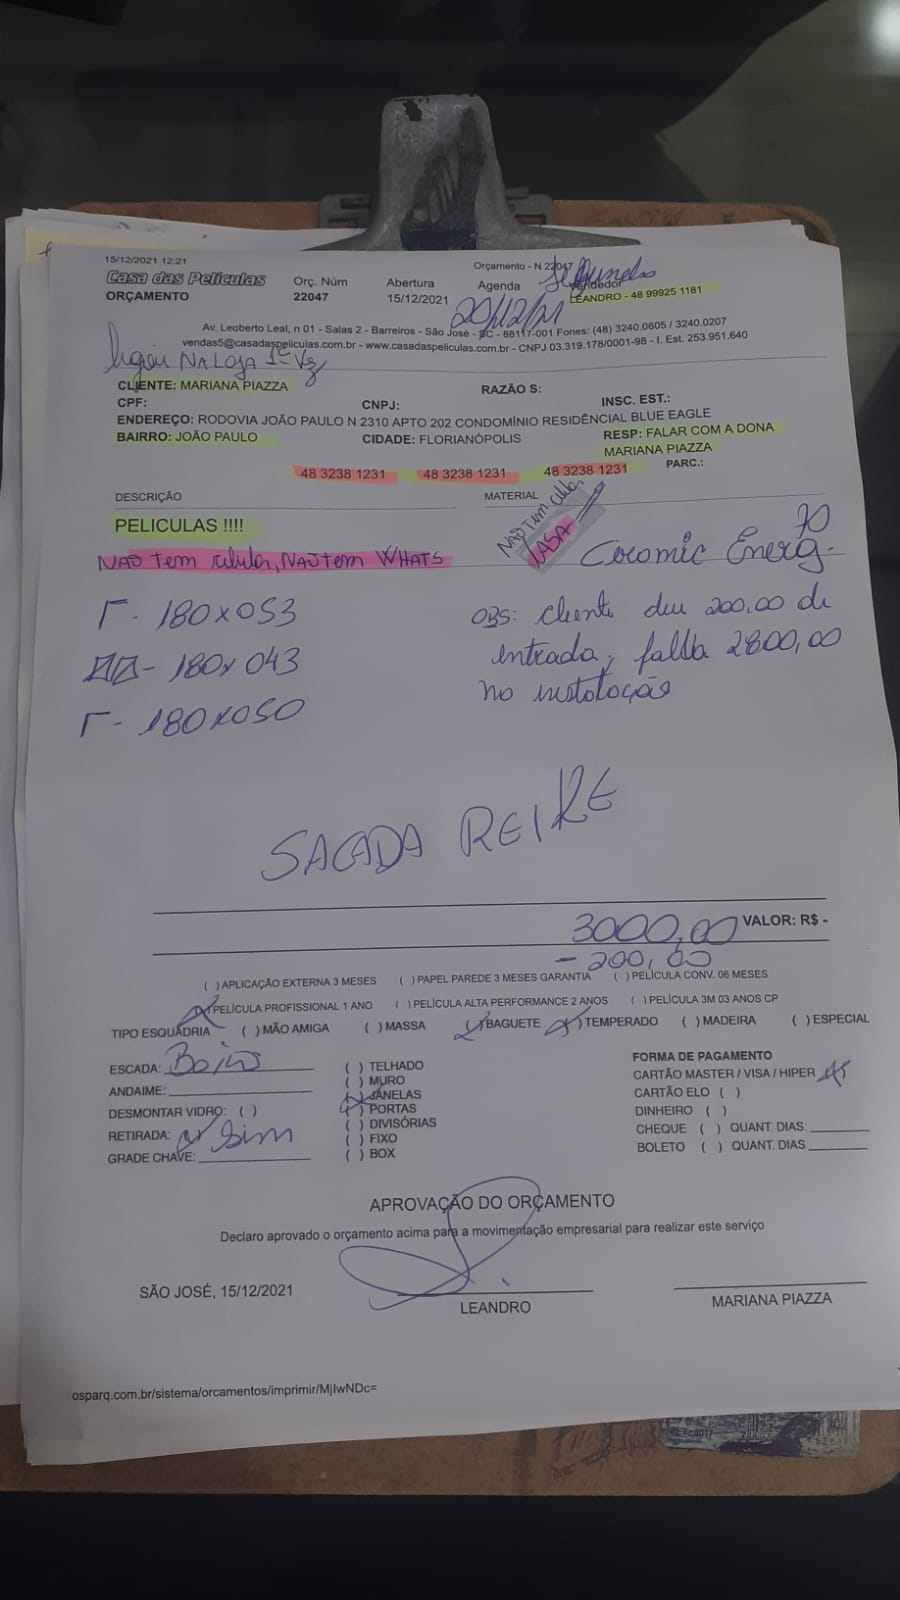 15/12/2021 12:21
Orçamento - N 22047
Segunda
Casa das Películas
Orç. Núm
Abertura
Agenda
Vendedor
ORÇAMENTO
22047
15/12/2021
20/12/21
LEANDRO - 48 99925 1181
Av. Leoberto Leal, n 01 - Salas 2 - Barreiros - São José - SC - 88117-001 Fones: (48) 3240.0605 / 3240.0207
vendas5@casadaspeliculas.com.br - www.casadaspeliculas.com.br - CNPJ 03.319.178/0001-98 - I. Est. 253.951.640
ligou NA LOJA 1º Vez
CLIENTE: MARIANA PIAZZA
RAZÃO S:
CPF:
CNPJ:
INSC. EST.:
ENDEREÇO: RODOVIA JOÃO PAULO N 2310 APTO 202 CONDOMÍNIO RESIDÊNCIAL BLUE EAGLE
BAIRRO: JOÃO PAULO
CIDADE: FLORIANÓPOLIS
RESP: FALAR COM A DONA
MARIANA PIAZZA
48 3238 1231 48 3238 1231 48 3238 1231
PARC.:
DESCRIÇÃO
MATERIAL
PELICULAS !!!!
NÃO Tem celular
CASA
70
NÃO Tem celular, NÃO tem WHATS
Ceramic Energ.
Γ - 180x053
- 180x 043
Γ - 180x050
OBS: cliente deu 200,00 de
entrada, falta 2800,00
na instalação
SACADA REIKE
3000,00
VALOR: R$ -
- 200,00
( ) APLICAÇÃO EXTERNA 3 MESES ( ) PAPEL PAREDE 3 MESES GARANTIA ( ) PELÍCULA CONV. 06 MESES
(X) PELÍCULA PROFISSIONAL 1 ANO ( ) PELÍCULA ALTA PERFORMANCE 2 ANOS ( ) PELÍCULA 3M 03 ANOS CP
TIPO ESQUADRIA ( ) MÃO AMIGA ( ) MASSA (X) BAGUETE (X) TEMPERADO ( ) MADEIRA ( ) ESPECIAL
ESCADA: Baixo
ANDAIME:
DESMONTAR VIDRO: ( )
RETIRADA: (X) Sim
GRADE CHAVE:
( ) TELHADO
( ) MURO
(X) JANELAS
(X) PORTAS
( ) DIVISÓRIAS
( ) FIXO
( ) BOX
FORMA DE PAGAMENTO
CARTÃO MASTER / VISA / HIPER (X)
CARTÃO ELO ( )
DINHEIRO ( )
CHEQUE ( ) QUANT. DIAS:
BOLETO ( ) QUANT. DIAS
APROVAÇÃO DO ORÇAMENTO
Declaro aprovado o orçamento acima para a movimentação empresarial para realizar este serviço
SÃO JOSÉ, 15/12/2021
LEANDRO
MARIANA PIAZZA
osparq.com.br/sistema/orcamentos/imprimir/MjIwNDc=